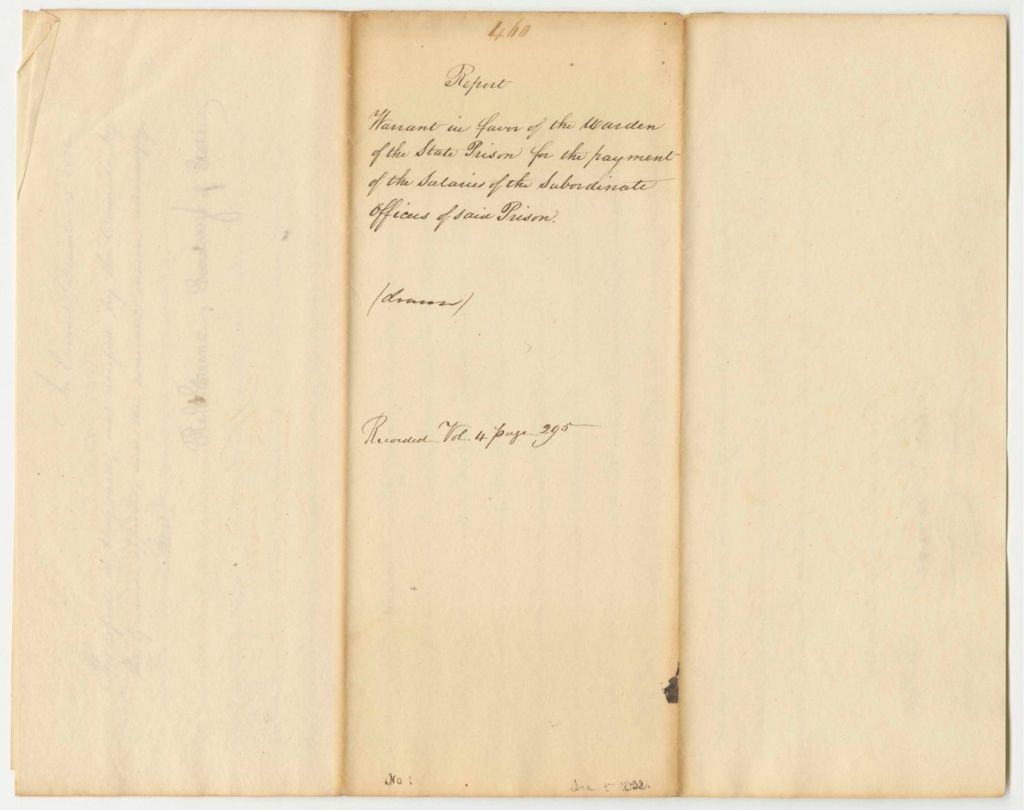 460
Report
Warrant in favor of the Warden
of the State Prison for the payment
of the Salaries of the Subordinate
Officers of said Prison.
(drawn)
Recorded Vol. 4 page 295
No 1